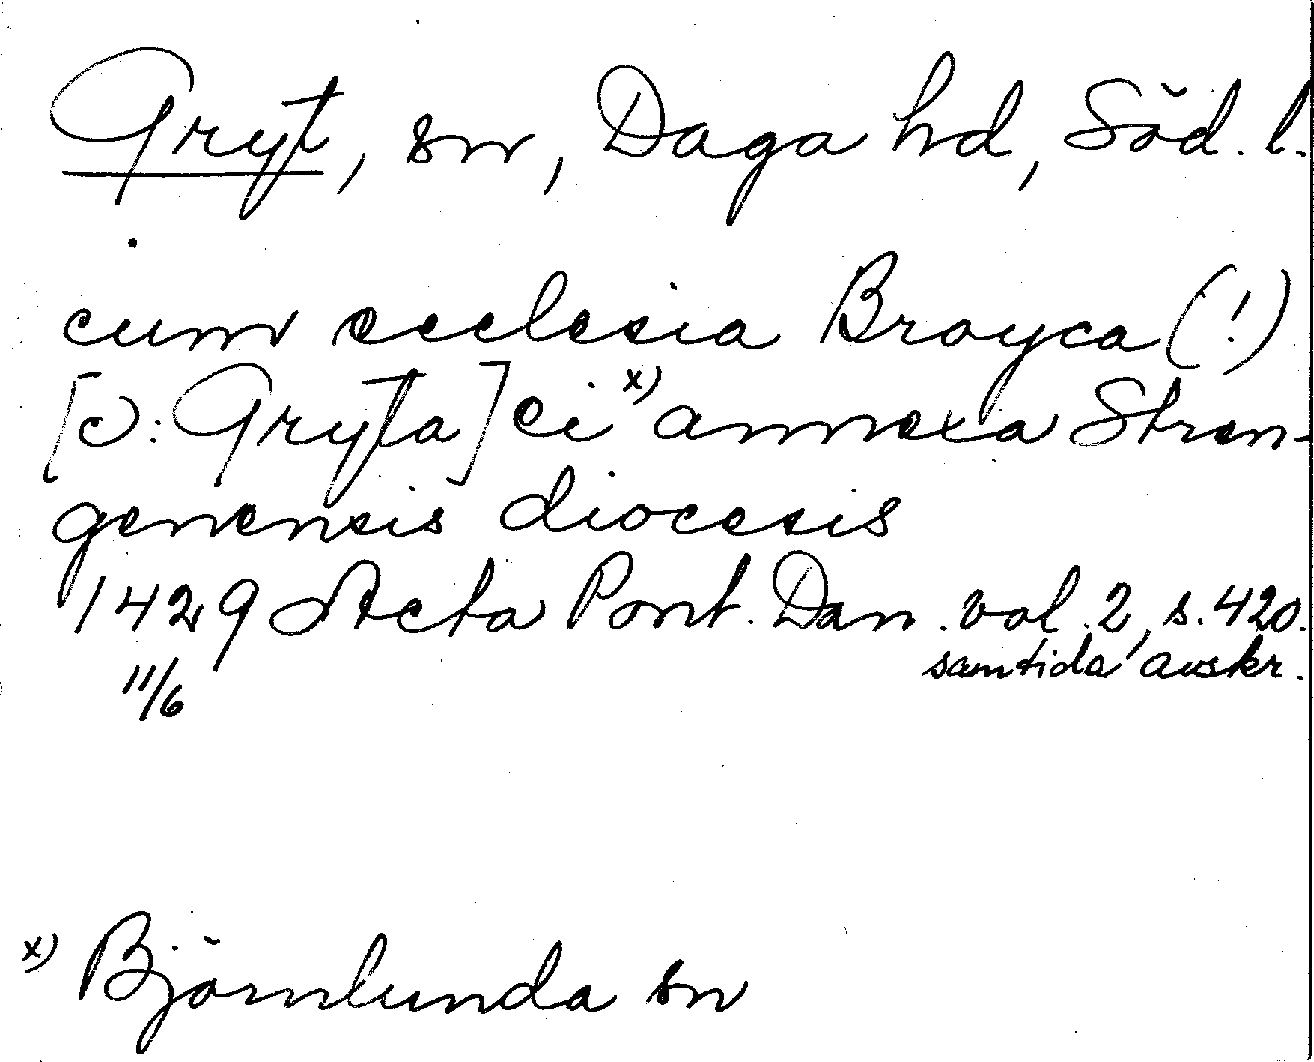 Gryt, sn, Daga hd, Söd. l.
cum ecclesia Broyca (!)
[ɔ: Gryta] ei x) annexa Stren-
genensis diocesis
1429 Acta Pont. Dan. vol. 2, s. 420.
11/6 samtida avskr.
x) Björnlunda sn